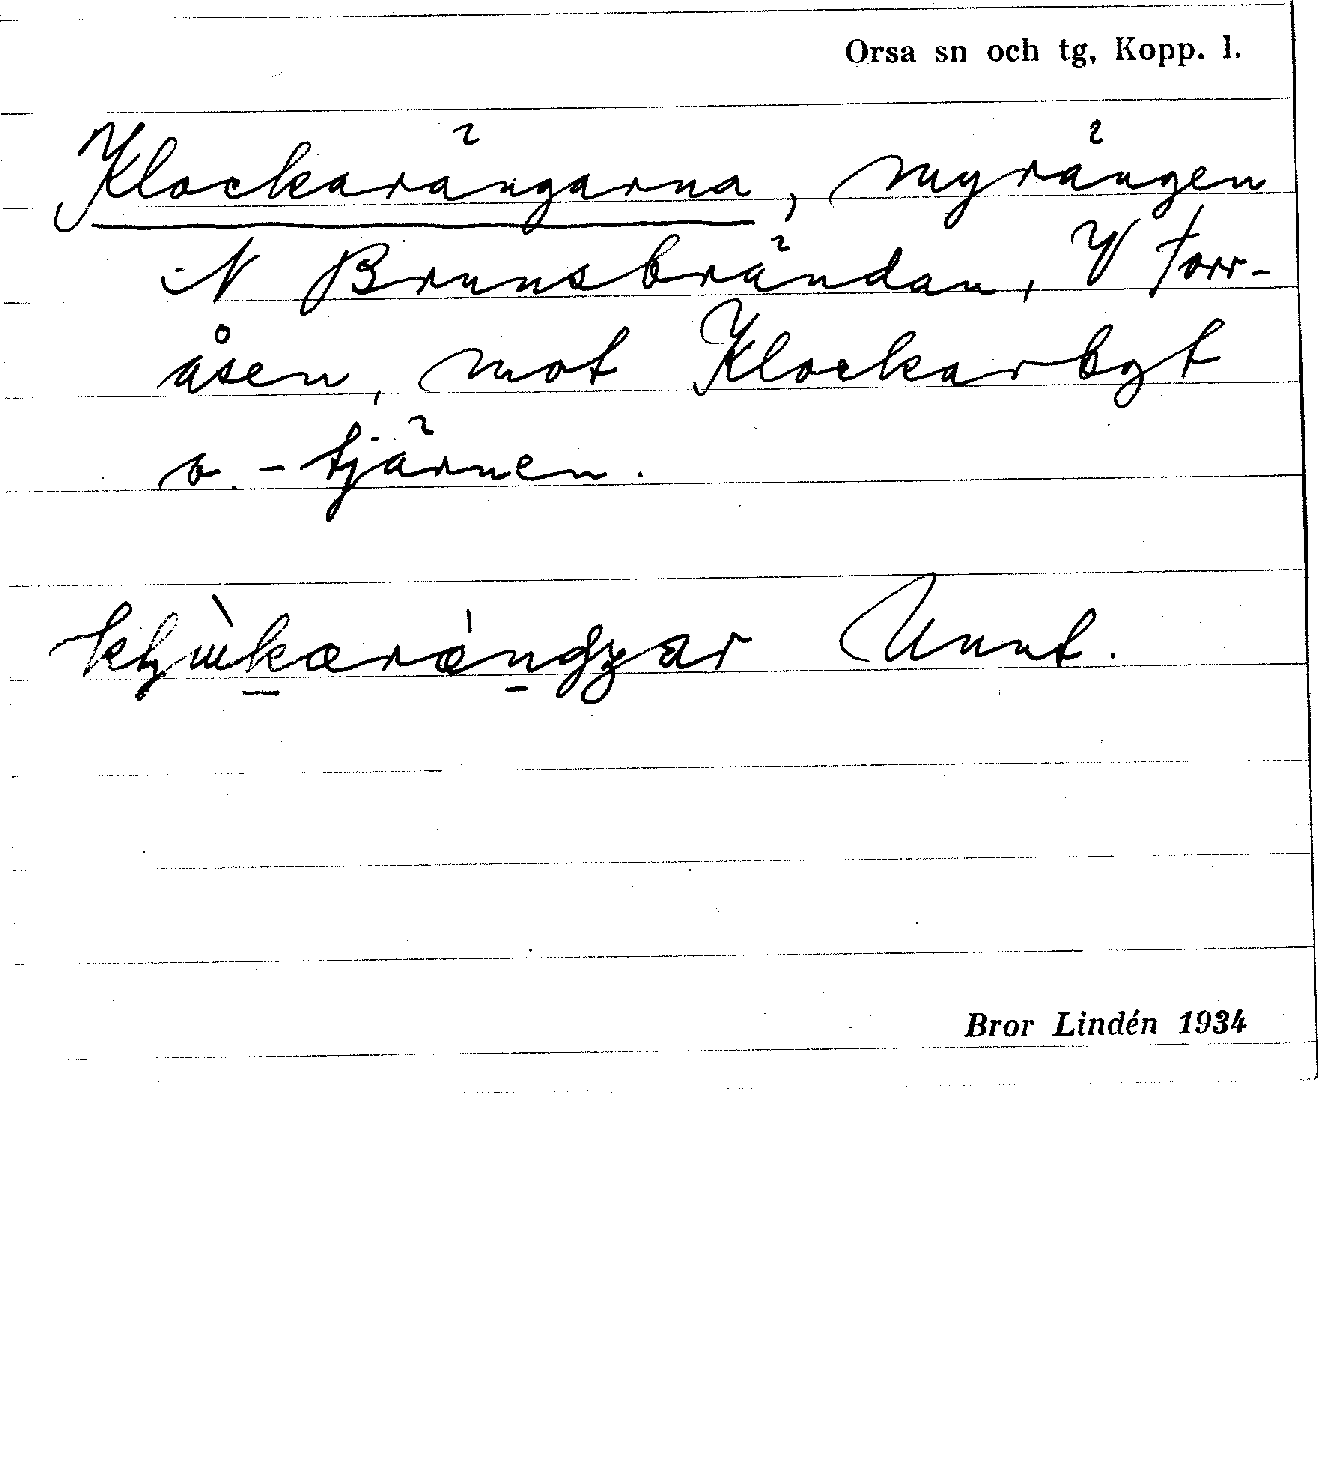 Orsa sn och tg, Kopp. l.
Klockarängarna, myrängen
N Brunsbrändan, V Torr-
åsen, mot Klockarbyt
o. -tjärnen.
Unnf.
Bror Lindén 1934